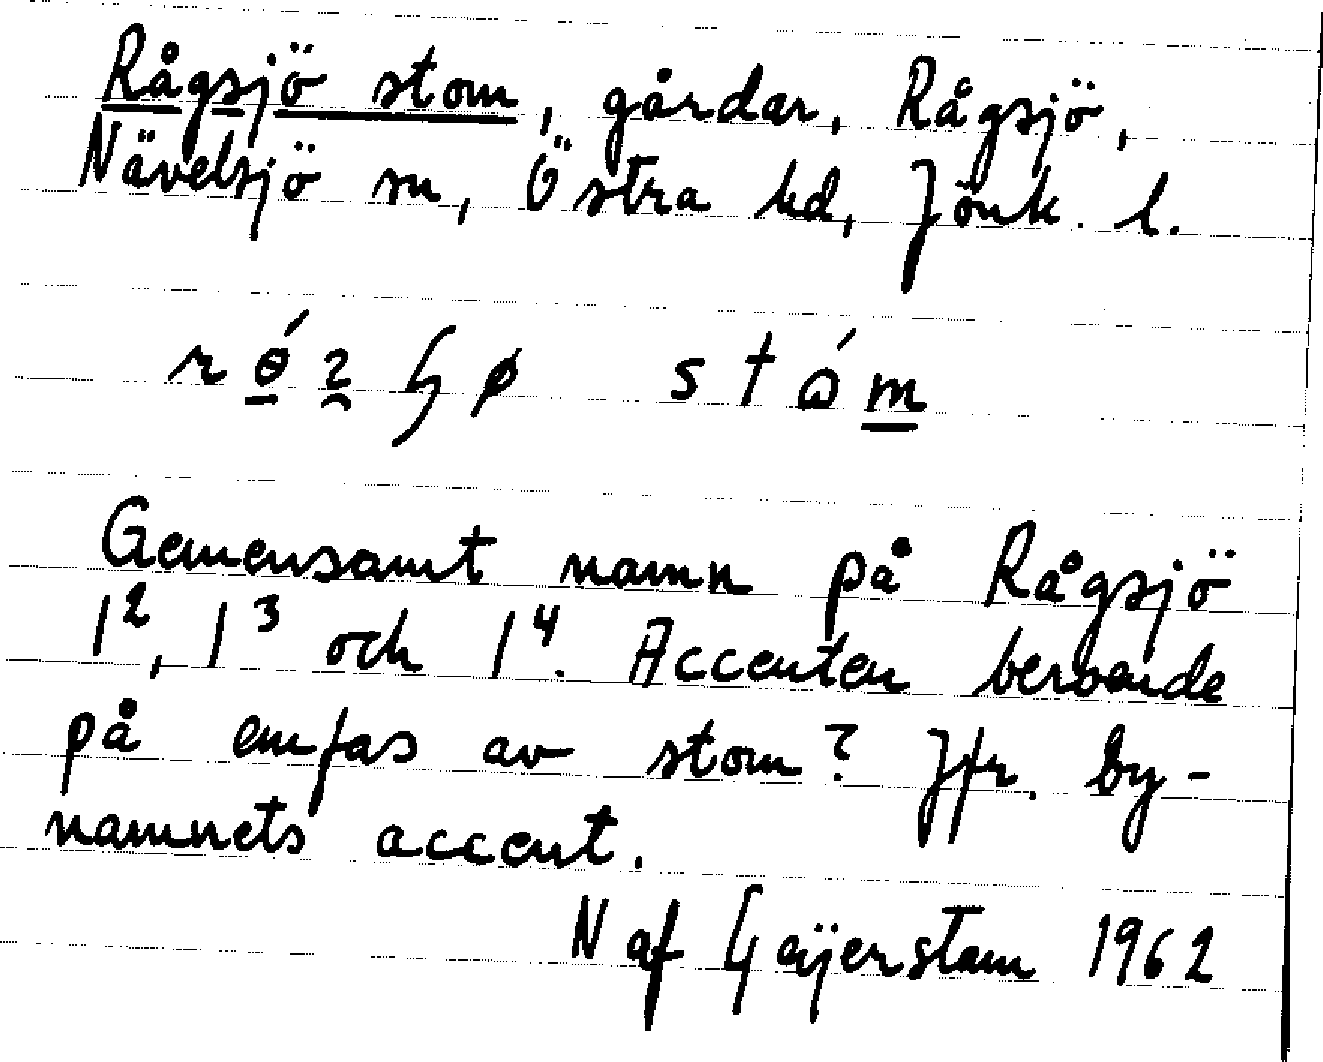 Rågsjö stom, gårdar, Rågsjö,
Nävelsjö sn, Östra hd, Jönk. l.
Gemensamt namn på Rågsjö
1², 1³ och 1⁴. Accenten beroende
på emfas av stom? Jfr. by-
namnets accent.
N af Geijerstam 1962